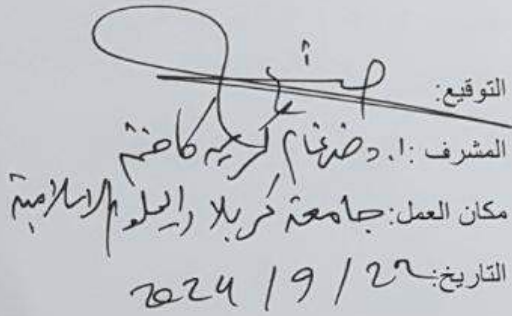 التوقيع:
المشرف: أ. د ضرغام كريم كاظم
مكان العمل: جامعة كربلاء العلوم الاسلامية
التاريخ: 22 / 9 / 2024